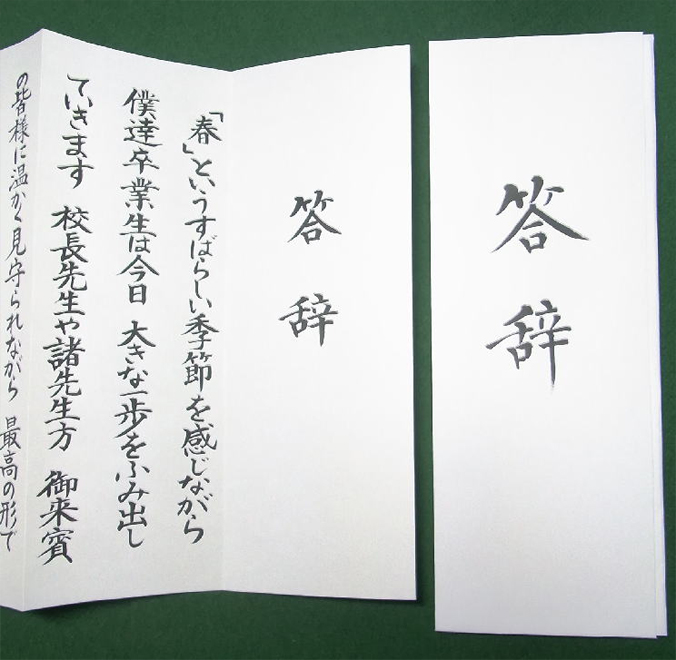 答辞
答辞
「春」というすばらしい季節を感じながら
僕達卒業生は今日 大きな一歩をふみ出し
ていきます 校長先生や諸先生方 御来賓
の皆様に温かく見守られながら 最高の形で